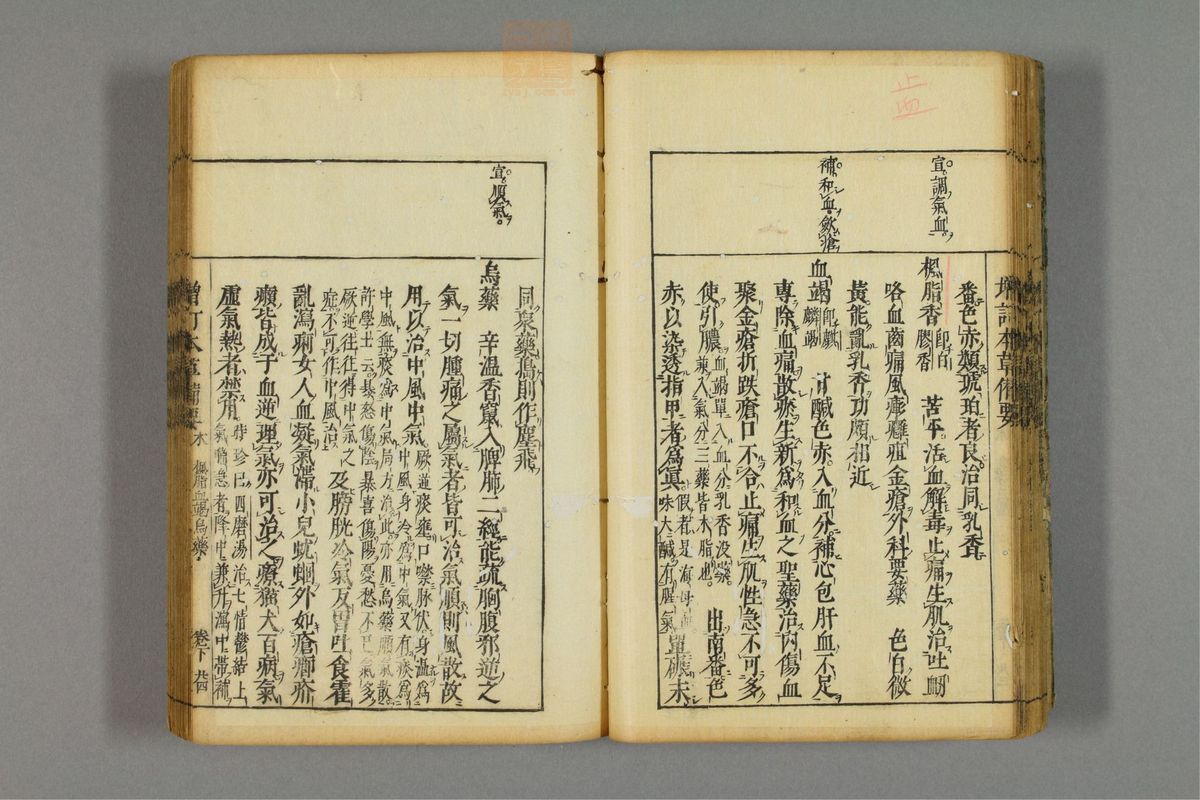 止血
增訂本草備要
宣調氣血
補和血斂瘡
番色赤類琥珀者良治同乳香
楓脂香 即白膠香 苦平活血解毒止痛生肌治吐衂
咯血齒痛風疹癰疽金瘡外科要藥 色白微
黃能亂乳香功頗相近
血竭 即麒麟竭 甘鹹色赤入血分補心包肝血不足
專除血痛散瘀生新爲和血之聖藥治内傷血
聚金瘡折跌瘡口不合止痛生肌性急不可多
使引膿 血竭單入血分乳香沒藥兼入氣分三藥皆木脂也 出南番色
赤以染透指甲者爲眞 假者是海母血味大鹹有腥氣 單碾末
宣順氣
同衆藥搗則作塵飛
烏藥 辛温香竄入脾肺二經能疏胸腹邪逆之
氣一切腫痛之屬氣者皆可治氣順則風散故
用以治中風中氣 厥逆痰壅口噤脉伏身温爲中風身冷爲中氣又有痰爲
中風無痰爲中氣局方治此亦用烏藥順氣散
許學士云暴怒傷陰暴喜傷陽憂愁不已氣多
厥逆往往得中氣之症不可作中風治 及膀胱冷氣反胃吐食霍
亂瀉痢女人血凝氣滯小兒蚘蛔外如瘡癤疥
癩皆成于血逆理氣亦可治之療猫犬百病氣
虛氣熱者禁用 時珍曰四磨湯治七情鬱結上氣喘急者降中兼升瀉中帶補
增訂本草備要 木 楓脂血竭烏藥 卷下 廿四